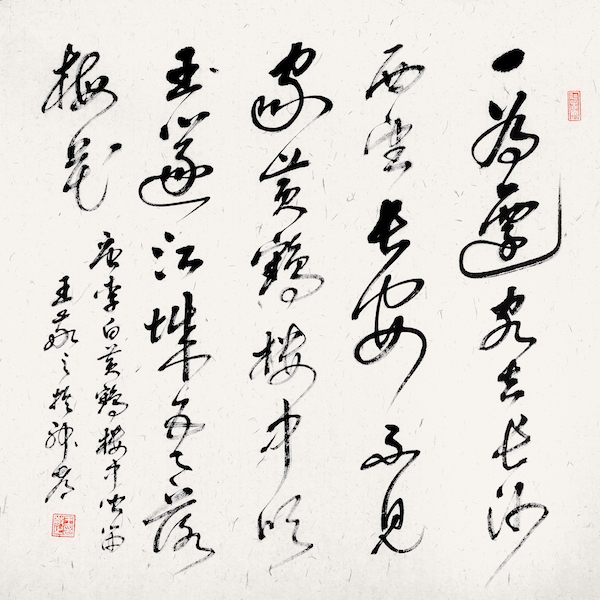 一為遷客去長沙
西望長安不見
家黃鶴樓中吹
玉篴江城五月落
梅花
唐李白黃鶴樓中聞篴
王